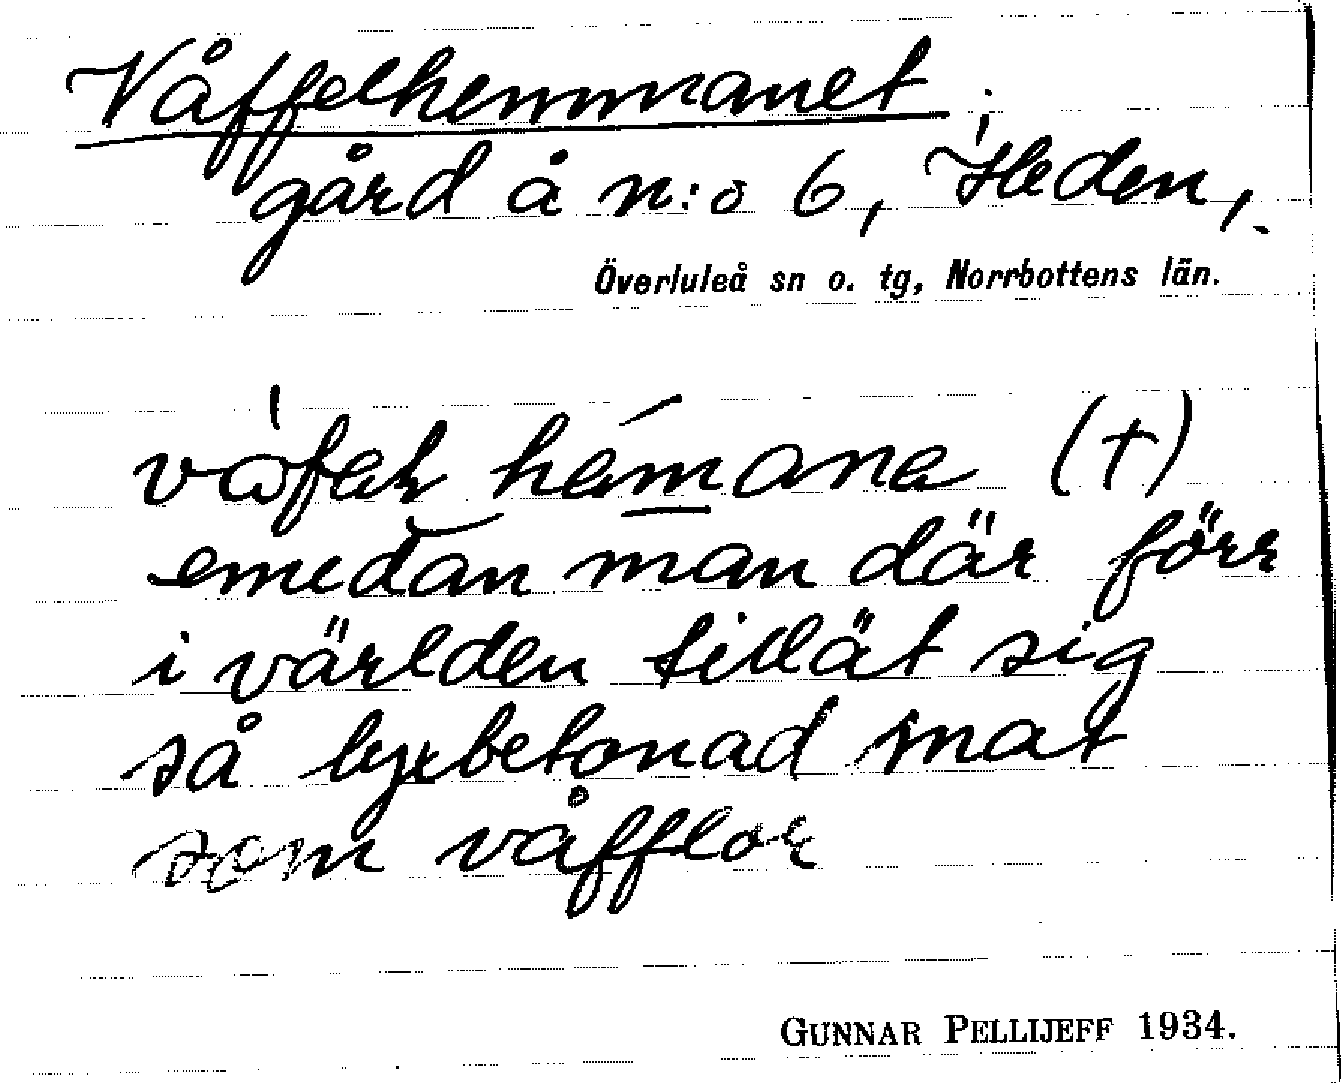 Våffelhemmanet,
gård å n:o 6, Heden,
Överluleå sn o. tg, Norrbottens län.
(†)
emedan man där förr
i världen tillät sig
så lyxbetonad mat
som våfflor
GUNNAR PELLIJEFF 1934.